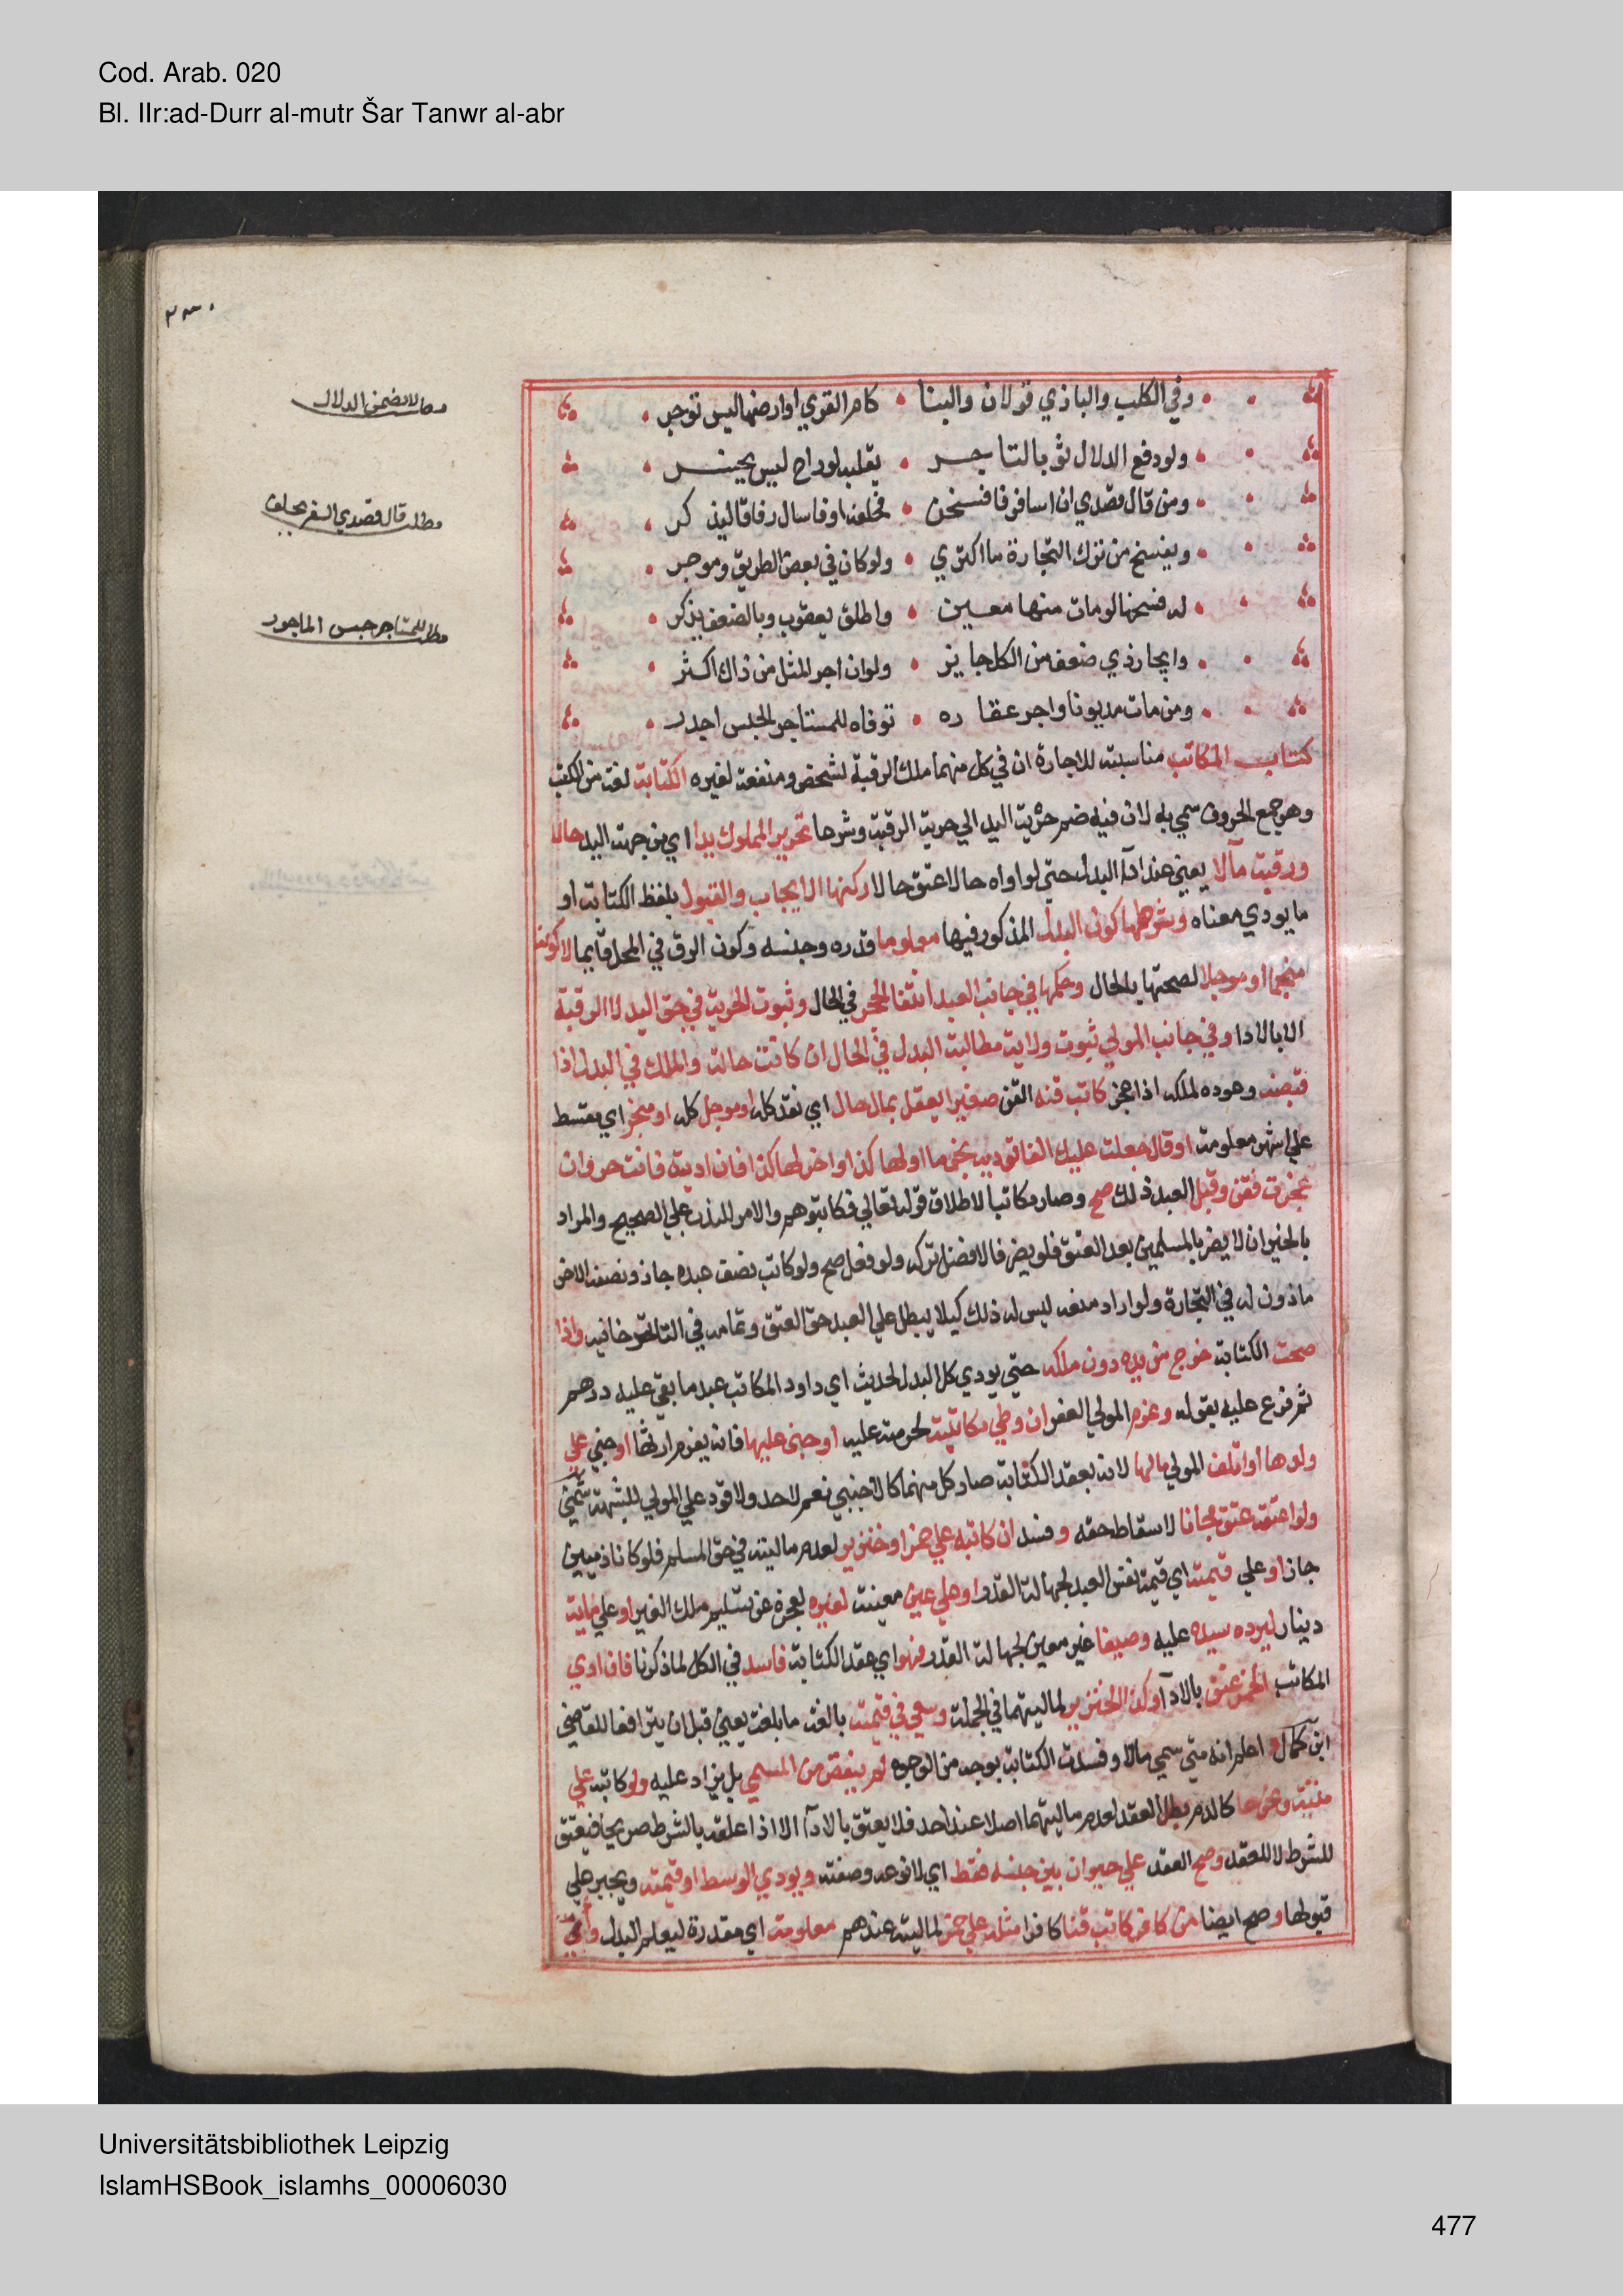 Cod. Arab. 020
Bl. IIr:ad-Durr al-mutr Šar Tanwr al-abr
وفي الكلب والبازي قولان والبنا كام القري او ارضها ليس توجر
ولو دفع الدلال ثوبا لتاجر يقلبه لو راح ليس يخسر
ومن قال قصدي ان اسافر فافسخن فحلفه او فاسال رفاقا ليذكر
ويفسخ من ترك التجارة ما اكتري ولو كان في بعض الطريق وموجر
له فسخها لو مات منها معين واطلق يعقوب وبالضعف يذكر
وايجار ذي ضعف من الكل جايز ولو ان اجر المثل من ذاك اكثر
ومن مات مديونا واجر عقاره توفاه للمستاجر الحبس اجدر
كتاب المكاتب مناسبته للاجارة ان في كل منهما ملك الرقبة لشخص ومنفعته لغيره الكتابة لغة من الكتب
وهو جمع الحروف سمي به لان فيه ضم حرية اليد الي حرية الرقبة وشرعا تحرير المملوك يدا اي من جهة اليد حالا
ورقبة مآلا يعني عند ادآ البدل حتي لو اداه حالا عتق حالا ركنها الايجاب والقبول بلفظ الكتابة او
ما يودي معناه وشرطها كون البدل المذكور فيها معلوما قدره وجنسه وكون الرق في المحل قايما لا كونه
منجما او موجلا لصحتها بالحال وحكمها في جانب العبد انتفا الحجر في الحال وثبوت الحرية في حق اليد لا الرقبة
الا بالادا وفي جانب المولي ثبوت ولاية مطالبة البدل في الحال ان كانت حالة والملك في البدل اذا
قبضه وعوده لملكه اذا عجز كاتب قنه القن صغيرا يعقل بمال حال اي نقد كله او موجل كله او منجم اي مقسط
علي اشهر معلومة او قال جعلت عليك الفا توديه نجوما اولها كذا واخرها كذا فان اديته فانت حر وان
عجزت فقن وقبل العبد ذلك صح وصار مكاتبا لاطلاق قوله تعالي فكاتبوهم والامر للندب علي الصحيح والمراد
بالخير ان لا يضر بالمسلمين بعد العتق فلو يضر فالافضل تركه ولو فعل صح ولو كاتب نصف عبده جاز ونصفه الاخر
ماذون له في التجارة ولو اراد منعه ليس له ذلك كيلا يبطل علي العبد حق العتق وتمامه في التاترخانيه واذا
صحت الكتابة خرج من يده دون ملكه حتي يودي كل البدل لحديث ابي داود المكاتب عبد ما بقي عليه درهم
ثم فرع عليه بقوله وغرم المولي العقر ان وطي مكاتبته لحرمته عليه او جني عليها فانه يغرم ارشها او جني علي
ولدها او اتلف المولي مالها لانه بعقد الكتابة صار كل منهما كالاجنبي نعم لا حد ولا قود علي المولي للشبهة شمني
ولو اعتقه عتق مجانا لاسقاط حقه وفسد ان كاتبه علي خمر او خنزير لعدم ماليته في حق المسلم فلو كانا ذميين
جاز او علي قيمته اي قيمة نفس العبد لجهالة القدر او علي عين معينة لغيره لعجزه عن تسليم ملك الغير او علي ماية
دينار ليرده سيده عليه وصيفا غير معين لجهالة القدر فهو اي عقد الكتابة فاسد في الكل لما ذكرنا فان ادي
المكاتب الخمر عتق بالادآ وكذا الخنزير لماليتهما في الجملة وسعي في قيمته بالغة ما بلغت يعني قبل ان يترافعا للقاضي
ابن كمال واعلم انه متي سمي مالا وفسدت الكتابة بوجه من الوجوه لم ينقص من المسمي بل يزاد عليه ولو كاتبه علي
ميتة ونحوها كالدم بطل العقد لعدم ماليتهما اصلا عند احد فلا يعتق بالادآ الا اذا علقه بالشرط صريحا فيعتق
للشرط لا للعقد وصح العقد علي حيوان بين جنسه فقط اي لا نوعه وصفته ويودي الوسط او قيمته ويجبر علي
قبولها وصح ايضا من كافر كاتب قنا كافرا مثله علي خمر لماليته عندهم معلومة اي مقدرة ليعلم البدل واي
لا يضمن الدلال
مطلب قال قصدي السفر يحلف
مطلب للمستاجر حبس الماجور
Universitätsbibliothek Leipzig
IslamHSBook_islamhs_00006030
477